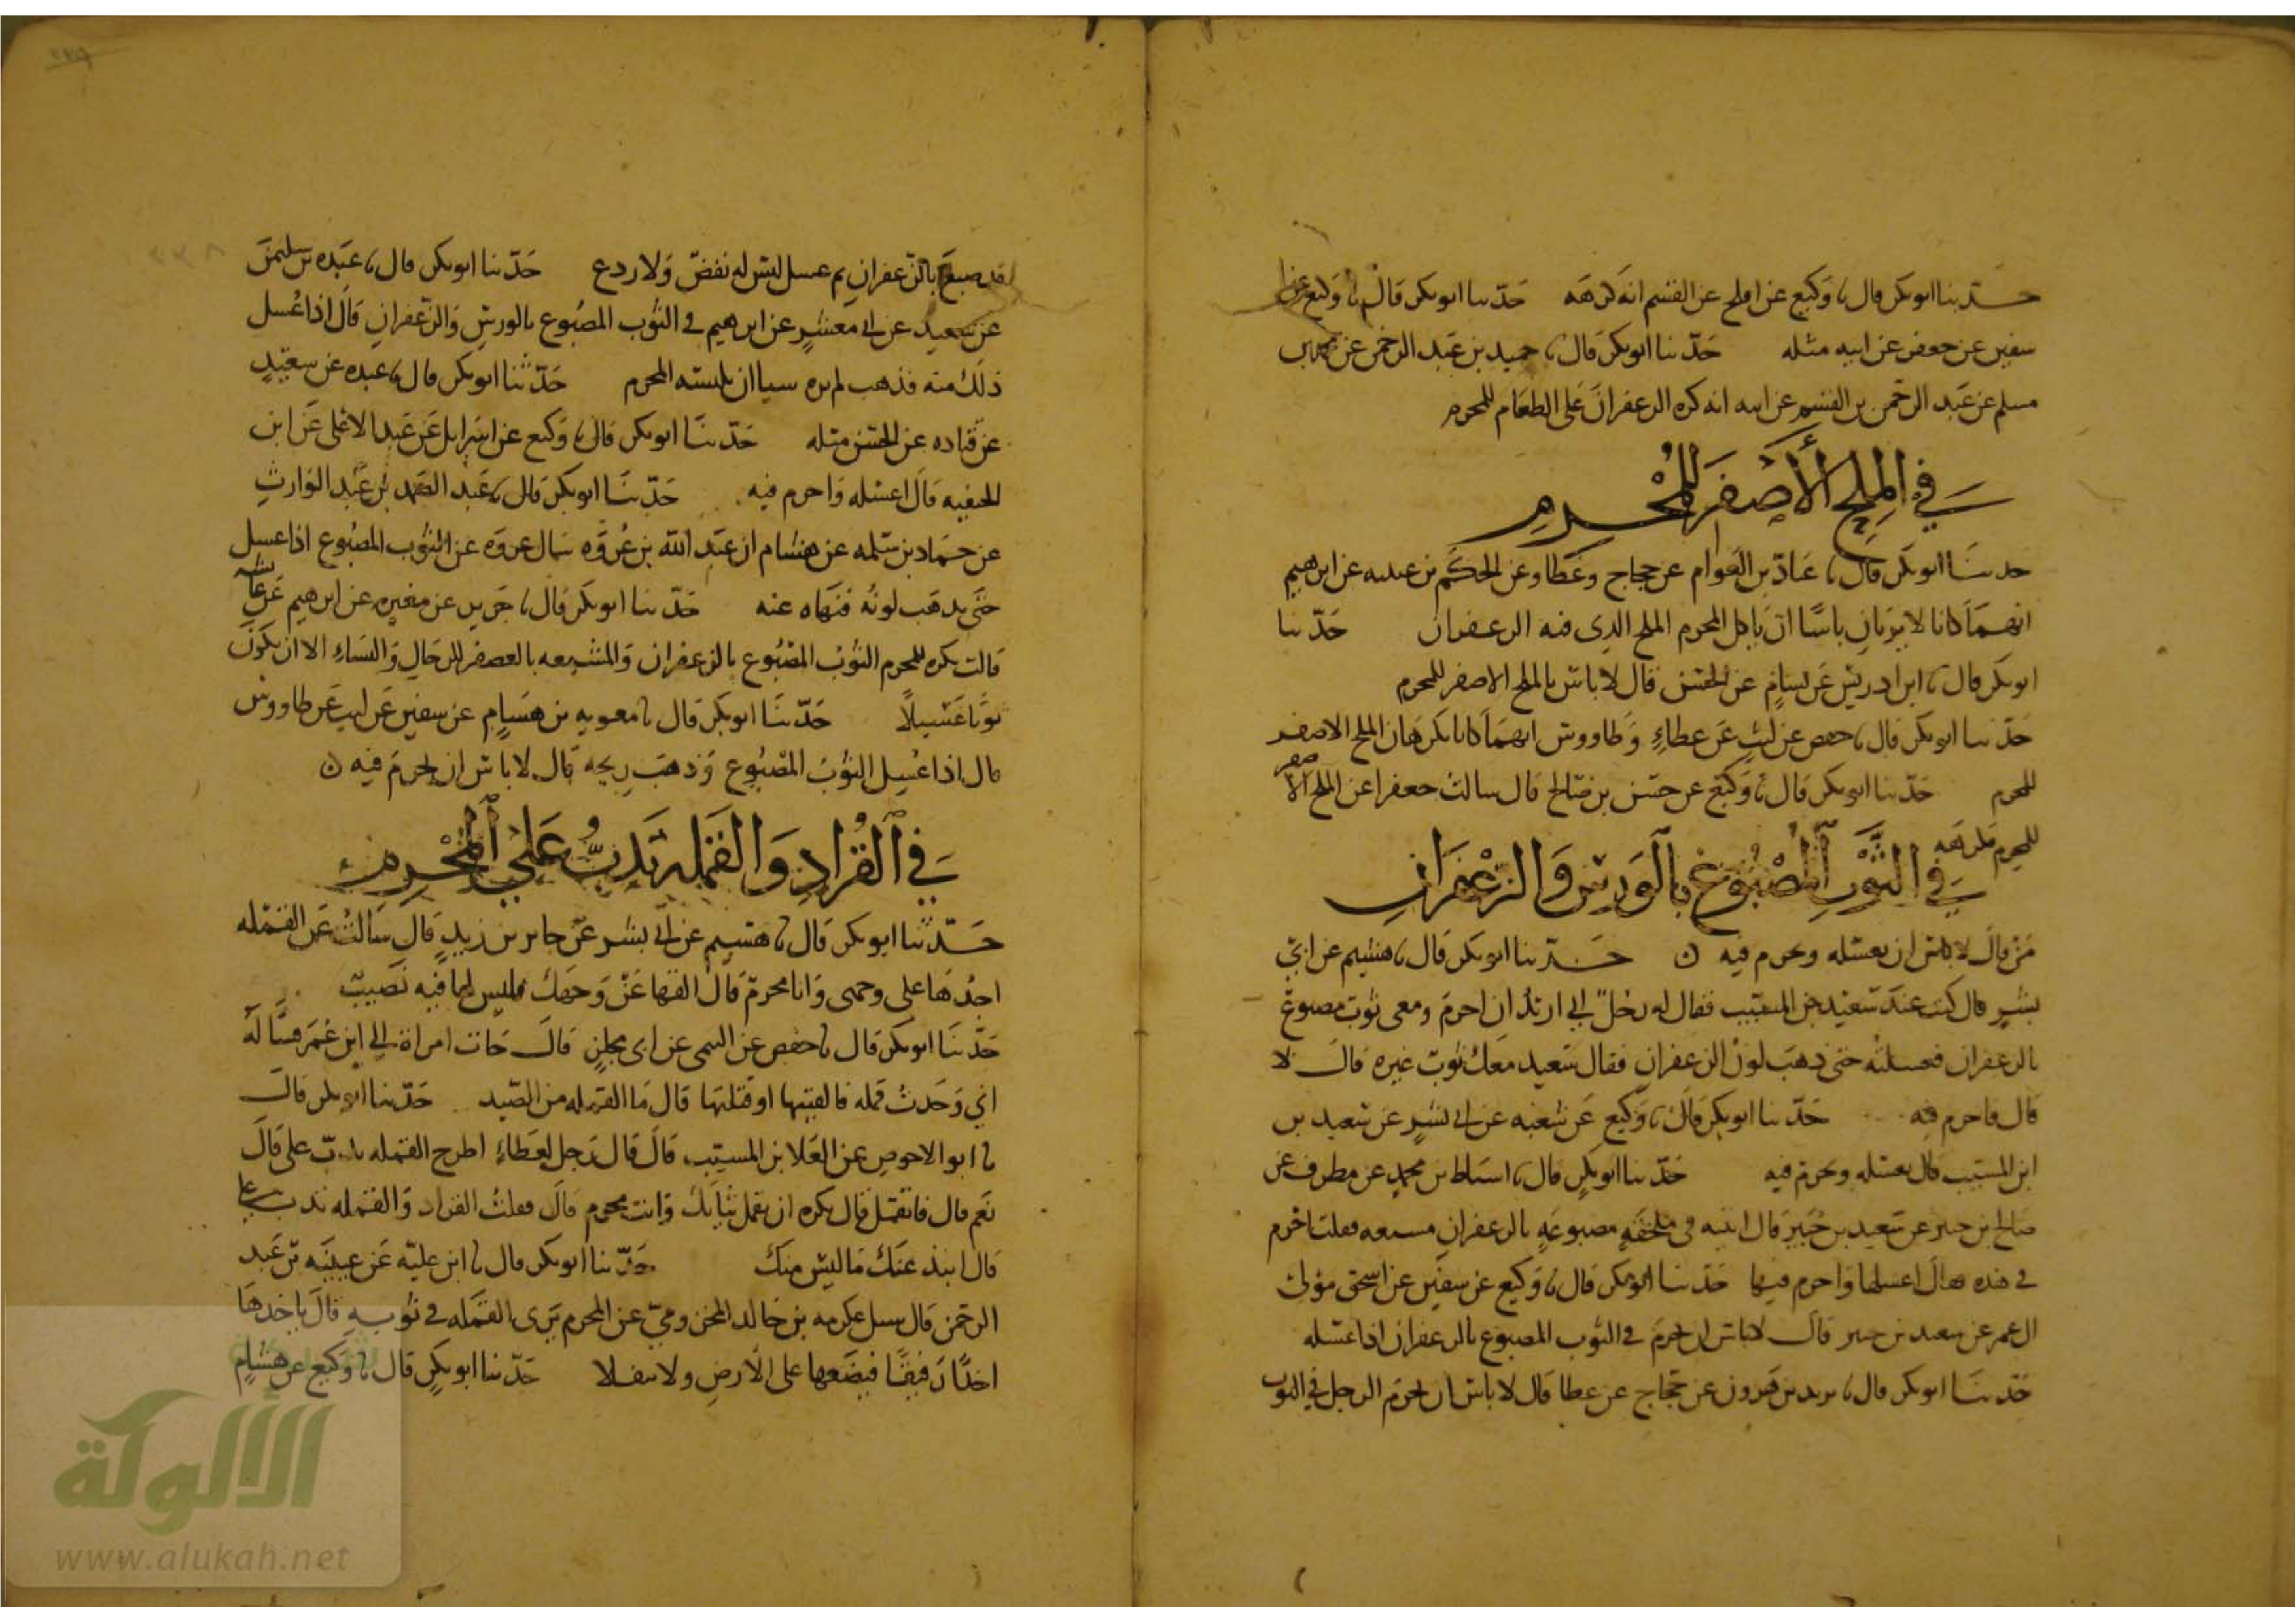 حدثنا ابو بكر قال نا وكيع عن افلح عن القسم انه كرهه حدثنا ابو بكر قال نا وكيع عن
سفين عن جعفر عن ابيه مثله حدثنا ابو بكر قال نا حميد بن عبد الرحمن عن محمد بن
مسلم عن عبد الرحمن بن القسم عن ابيه انه كره الزعفران على الطعام للمحرم
في الملح الأصفر للمحرم
حدثنا ابو بكر قال نا عباد بن العوام عن حجاج وعطا وعن الحكم بن عتيبه عن ابرهيم
انهما كانا لا يريان باسا ان ياكل المحرم الملح الذي فيه الزعفران حدثنا
ابو بكر قال نا ابن ادريس عن هشام عن الحسن قال لا باس بالملح الاصفر للمحرم
حدثنا ابو بكر قال نا حفص عن ليث عن عطاء وطاووس انهما كانا يكرهان الملح الاصفر
للمحرم حدثنا ابو بكر قال نا وكيع عن حسن بن صالح قال سالت جعفرا عن الملح الاصفر
للمحرم فكرهه
في الثوب المصبوغ بالورس والزعفران
من قال لا باس ان يغسله ويحرم فيه حدثنا ابو بكر قال نا هشيم عن ابي
بشر قال كنت عند سعيد بن المسيب فقال له رجل اني اريد ان احرم ومعي ثوب مصبوغ
بالزعفران فغسلته حتى ذهب لون الزعفران فقال سعيد معك ثوب غيره قال لا
قال فاحرم فيه حدثنا ابو بكر قال نا وكيع عن شعبه عن ابي بشر عن سعيد بن
ابن المسيب قال يغسله ويحرم فيه حدثنا ابو بكر قال نا اسباط بن محمد عن مطرف عن
صالح بن جبير عن سعيد بن جبير قال اتيته في ملحفة مصبوغة بالزعفران مسبعه فقلت احرم
في هذه فقال اغسلها واحرم فيها حدثنا ابو بكر قال نا وكيع عن سفين عن اسحق مولى
ال عمر عن سعيد بن جبير قال لا باس ان يحرم في الثوب المصبوغ بالزعفران اذا غسله
حدثنا ابو بكر قال نا يزيد بن هرون عن حجاج عن عطا قال لا باس ان يحرم الرجل في الثوب
قد صبغ بالزعفران ثم غسل ليس له نفض ولا ردع حدثنا ابو بكر قال نا عبده بن سليمن
عن سعيد عن ابي معشر عن ابرهيم في الثوب المصبوغ بالورس والزعفران قال اذا غسل
ذلك منه فذهب لم يره سيا ان يلبسه المحرم حدثنا ابو بكر قال نا عبده عن سعيد
عن قتاده عن الحسن مثله حدثنا ابو بكر قال نا وكيع عن اسرايل عن عبد الاعلى عن ابن
الحنفيه قال اغسله واحرم فيه حدثنا ابو بكر قال نا عبد الصمد بن عبد الوارث
عن حماد بن سلمه عن هشام ان عبد الله بن عروه سال عروه عن الثوب المصبوغ اذا غسل
حتى يذهب لونه فنهاه عنه حدثنا ابو بكر قال نا جرير عن مغيره عن ابرهيم عن عائشه
قالت يكره للمحرم الثوب المصبوغ بالزعفران والمشبعه بالعصفر للرجال والنساء الا ان يكون
ثوبا غسيلا حدثنا ابو بكر قال نا معويه بن هشام عن سفين عن ليث عن طاووس
قال اذا غسل الثوب المصبوغ وذهب ريحه قال لا باس ان يحرم فيه
في القراد والقمله تدب على المحرم
حدثنا ابو بكر قال نا هشيم عن ابي بشر عن جابر بن زيد قال سالت عن القمله
اجدها على وجهي وانا محرم قال القها عن وجهك فليس لها فيه نصيب
حدثنا ابو بكر قال نا حفص عن التيمي عن ابي مجلز قال جات امراة الى ابن عمر فسالته
اني وجدت قمله فالقيتها او قتلتها قال ما القمله من الصيد حدثنا ابو بكر قال
نا ابو الاحوص عن العلا بن المسيب قال قال رجل لعطاء اطرح القمله تدب علي قال
نعم قال فاتقمل قال يكره ان تقمل ثيابك وانت محرم قال فقلت القراد والقمله تدب علي
قال انبذ عنك ما ليس منك حدثنا ابو بكر قال نا ابن عليه عن عيينه بن عبد
الرحمن قال سيل عكرمه بن خالد المخزومي عن المحرم يرى القمله في ثوبه قال ياخذها
اخذا رفيقا فيضعها على الارض ولا يتفلا حدثنا ابو بكر قال نا وكيع عن هشام
الألوكة
www.alukah.net